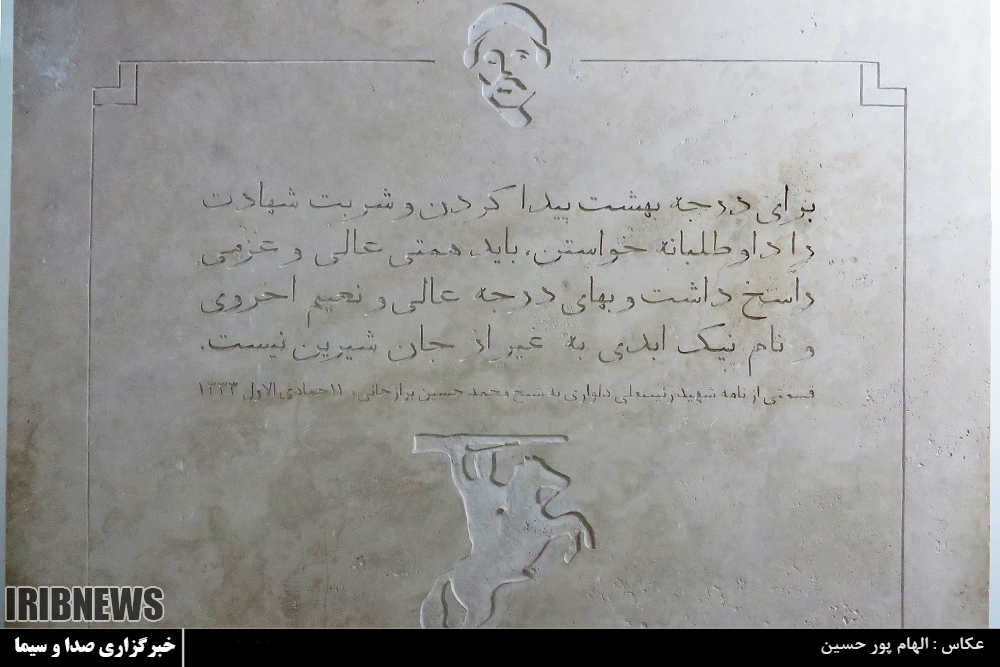 برای درجه بهشت پیدا کردن و شربت شهادت
را داوطلبانه خواستن، باید همتی عالی و عزمی
راسخ داشت و بهای درجه عالی و نعیم اخروی
و نام نیک ابدی به غیر از جان شیرین نیست.
قسمتی از نامه شهید رئیسعلی دلواری به شیخ محمد حسین برازجانی، ۱۱ جمادی الاول ۱۳۳۳
IRIBNEWS
عکاس : الهام پور حسین
خبرگزاری صدا و سیما